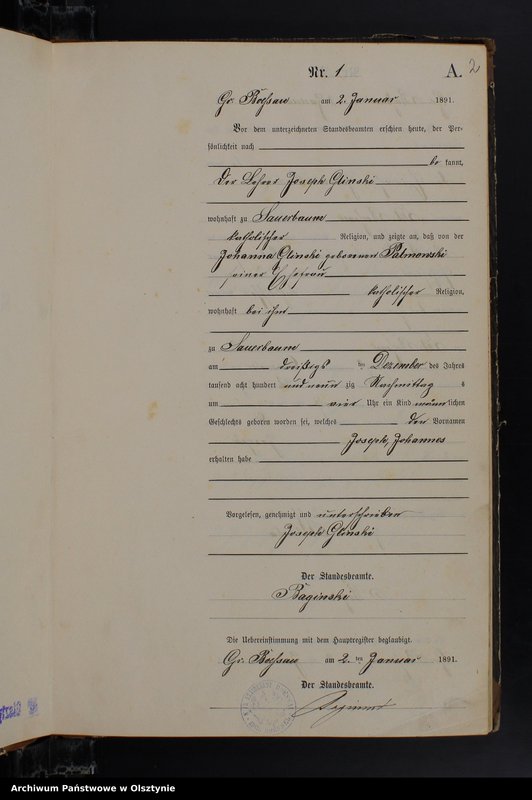 Nr. 1 A. 2
Gr. Bössau am 2. Januar 1891.
Vor dem unterzeichneten Standesbeamten erschien heute, der Per-
sönlichkeit nach
be kannt,
Der Lehrer Joseph Glinski
wohnhaft zu Sauerbaum
katholischer Religion, und zeigte an, daß von der
Johanna Glinski geborenen Palmowski
seiner Ehefrau
katholischer Religion,
wohnhaft bei ihm
zu Sauerbaum
am dreißigs ten Dezember des Jahres
tausend acht hundert und neun zig Nachmittag s
um vier Uhr ein Kind männlichen
Geschlechts geboren worden sei, welches den Vornamen
Joseph, Johannes
erhalten habe
Vorgelesen, genehmigt und unterschrieben
Joseph Glinski
Der Standesbeamte.
Baginski
Die Uebereinstimmung mit dem Hauptregister beglaubigt.
Gr. Bössau am 2. ten Januar 1891.
Der Standesbeamte.
Archiwum Państwowe w Olsztynie